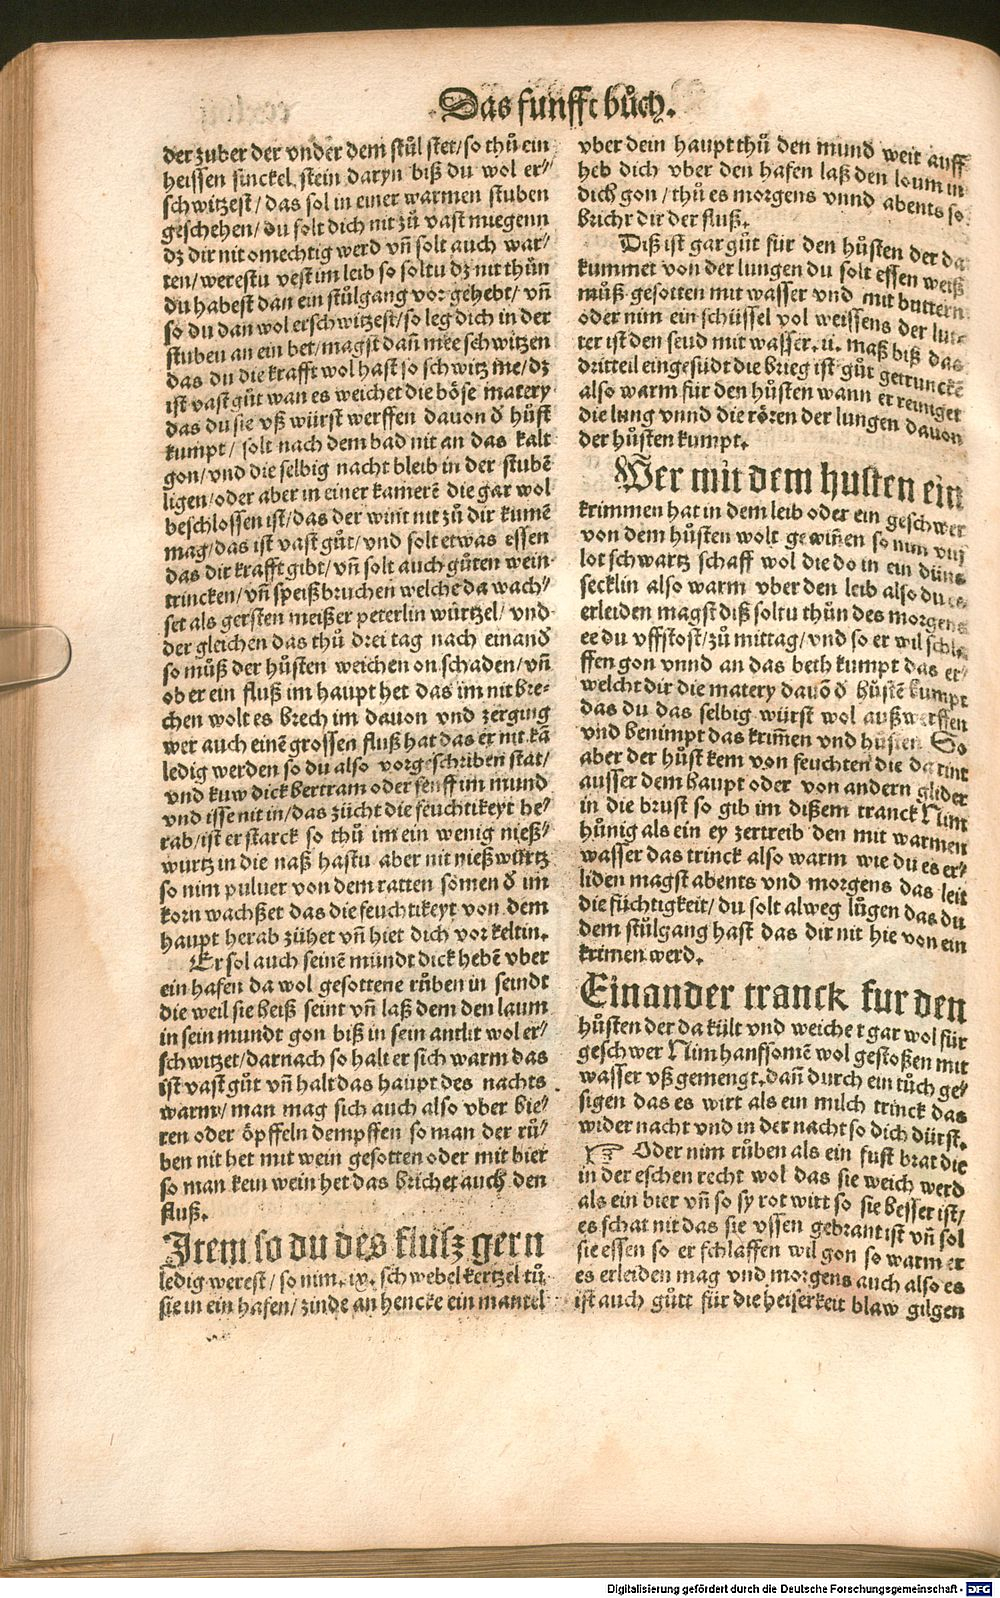 Das funfft bůch.
der zuber der vnder dem stůl stet/so thů ein
heissen sinckel stein daryn biß du wol er⸗/
schwitzest/das sol in einer warmen stuben
geschehen/du solt dich nit zů vast muegenn
dz dir nit omechtig werd vñ solt auch war⸗/
ten/werestu vest im leib so soltu dz nit thůn
du habest dan ein stůlgang vor gehebt/vñ
so du dan wol erschwitzest/so leg dich in der
stuben an ein bet/magst dañ mee schwitzen
das du die krafft wol hast so schwitz me/dz
ist vast gůt wan es weichet die böse matery
das du sie vß würst werffen dauon d̄ hůst
kumpt/solt nach dem bad nit an das kalt
gon/vnd die selbig nacht bleib in der stubē
ligen/oder aber in einer kamerē die gar wol
beschlossen ist/das der wint nit zů dir kumē
mag/das ist vast gůt/vnd solt etwas essen
das dir krafft gibt/vñ solt auch gůten wein
trincken/vñ speißbruchen welche da wach⸗/
set als gersten meißer peterlin würtzel/vnd
der gleichen das thů drei tag nach einand̄
so můß der hůsten weichen on schaden/vñ
ob er ein fluß im haupt het das im nit bre⸗
chen wolt es brech im dauon vnd zerging
wer auch einē grossen fluß hat das er nit kā
ledig werden so du also vorgeschriben stat/
vnd kuw dick bertram oder senff im mund
vnd isse nit in/das zücht die feuchtikeyt he⸗
rab/ist er starck so thů im ein wenig nieß⸗/
wurtz in die naß hastu aber nit nieß würtz
so nim puluer von dem ratten somen d̄ im
korn wachßet das die feuchtikeyt von dem
haupt herab zühet vñ hiet dich vor keltin.
Er sol auch seinē mundt dick hebē vber
ein hafen da wol gesottene růben in seindt
die weil sie heiß seint vñ laß dem den laum
in sein mundt gon biß in sein antlit wol er⸗/
schwitzet/darnach so halt er sich warm das
ist vast gůt vñ halt das haupt des nachts
warm/man mag sich auch also vber bie⸗/
ren oder öpffeln dempffen so man der rů⸗/
ben nit het mit wein gesotten oder mit bier
so man kein wein het das brichet auch den
fluß.
Item so du des flusz gern
ledig werest/so nim .ix. schwebel kertzel tů
sie in ein hafen/zinde an hencke ein mantel
vber dein haupt thů den mund weit auff
heb dich vber den hafen laß den loum in
dich gon/thů es morgens vnnd abents so
bricht dir der fluß.
Diß ist gar gůt für den hůsten der da
kummet von der lungen du solt essen weiß
můß gesotten mit wasser vnd mit buttern
oder nim ein schüssel vol weissens der lut⸗
ter ist den seud mit wasser .ii. maß biß das
dritteil eingesüdt die brieg ist gůt getrunckē
also warm für den hůsten wann er reiniget
die lung vnnd die rören der lungen dauon
der hůsten kumpt.
Wer mit dem husten ein
krimmen hat in dem leib oder ein geschwer
von dem hůsten wolt gewiñen so nim viij
lot schwartz schaff wol die do in ein düns
secklin also warm vber den leib also du es
erleiden magst diß soltu thůn des morgens
ee du vffstost/zů mittag/vnd so er wil schla
ffen gon vnnd an das beth kumpt das er⸗/
welcht dir die matery dauō d̄ hůstē kumpt
das du das selbig würst wol außwerffen
vnd benimpt das krim̄en vnd hůsten. So
aber der hůst kem von feuchten die da rint
ausser dem haupt oder von andern glider
in die brust so gib im dißem tranck Nim
hünig als ein ey zertreib den mit warmen
wasser das trinck also warm wie du es er⸗
liden magst abents vnd morgens das leit
die füchtigkeit/du solt alweg lůgen das du
dem stůlgang hast das dir nit hie von ein
krimen werd.
Ein ander tranck fur den
hůsten der da kült vnd weichet gar wol für
geschwer Nim hanffsomē wol gestoßen mit
wasser vß gemengt. dañ durch ein tůch ge⸗/
sigen das es wirt als ein milch trinck das
wider nacht vnd in der nacht so dich dürst.
☞ Oder nim růben als ein fust brat die
in der eschen recht wol das sie weich werd
als ein bier vñ so sy rot wirt so sie besser ist/
es schat nit das sie vssen gebrant ist vñ sol
sie essen so er schlaffen wil gon so warm er
es erleiden mag vnd morgens auch also es
ist auch gůtt für die heiserkeit blaw gilgen
Digitalisierung gefördert durch die Deutsche Forschungsgemeinschaft - DFG